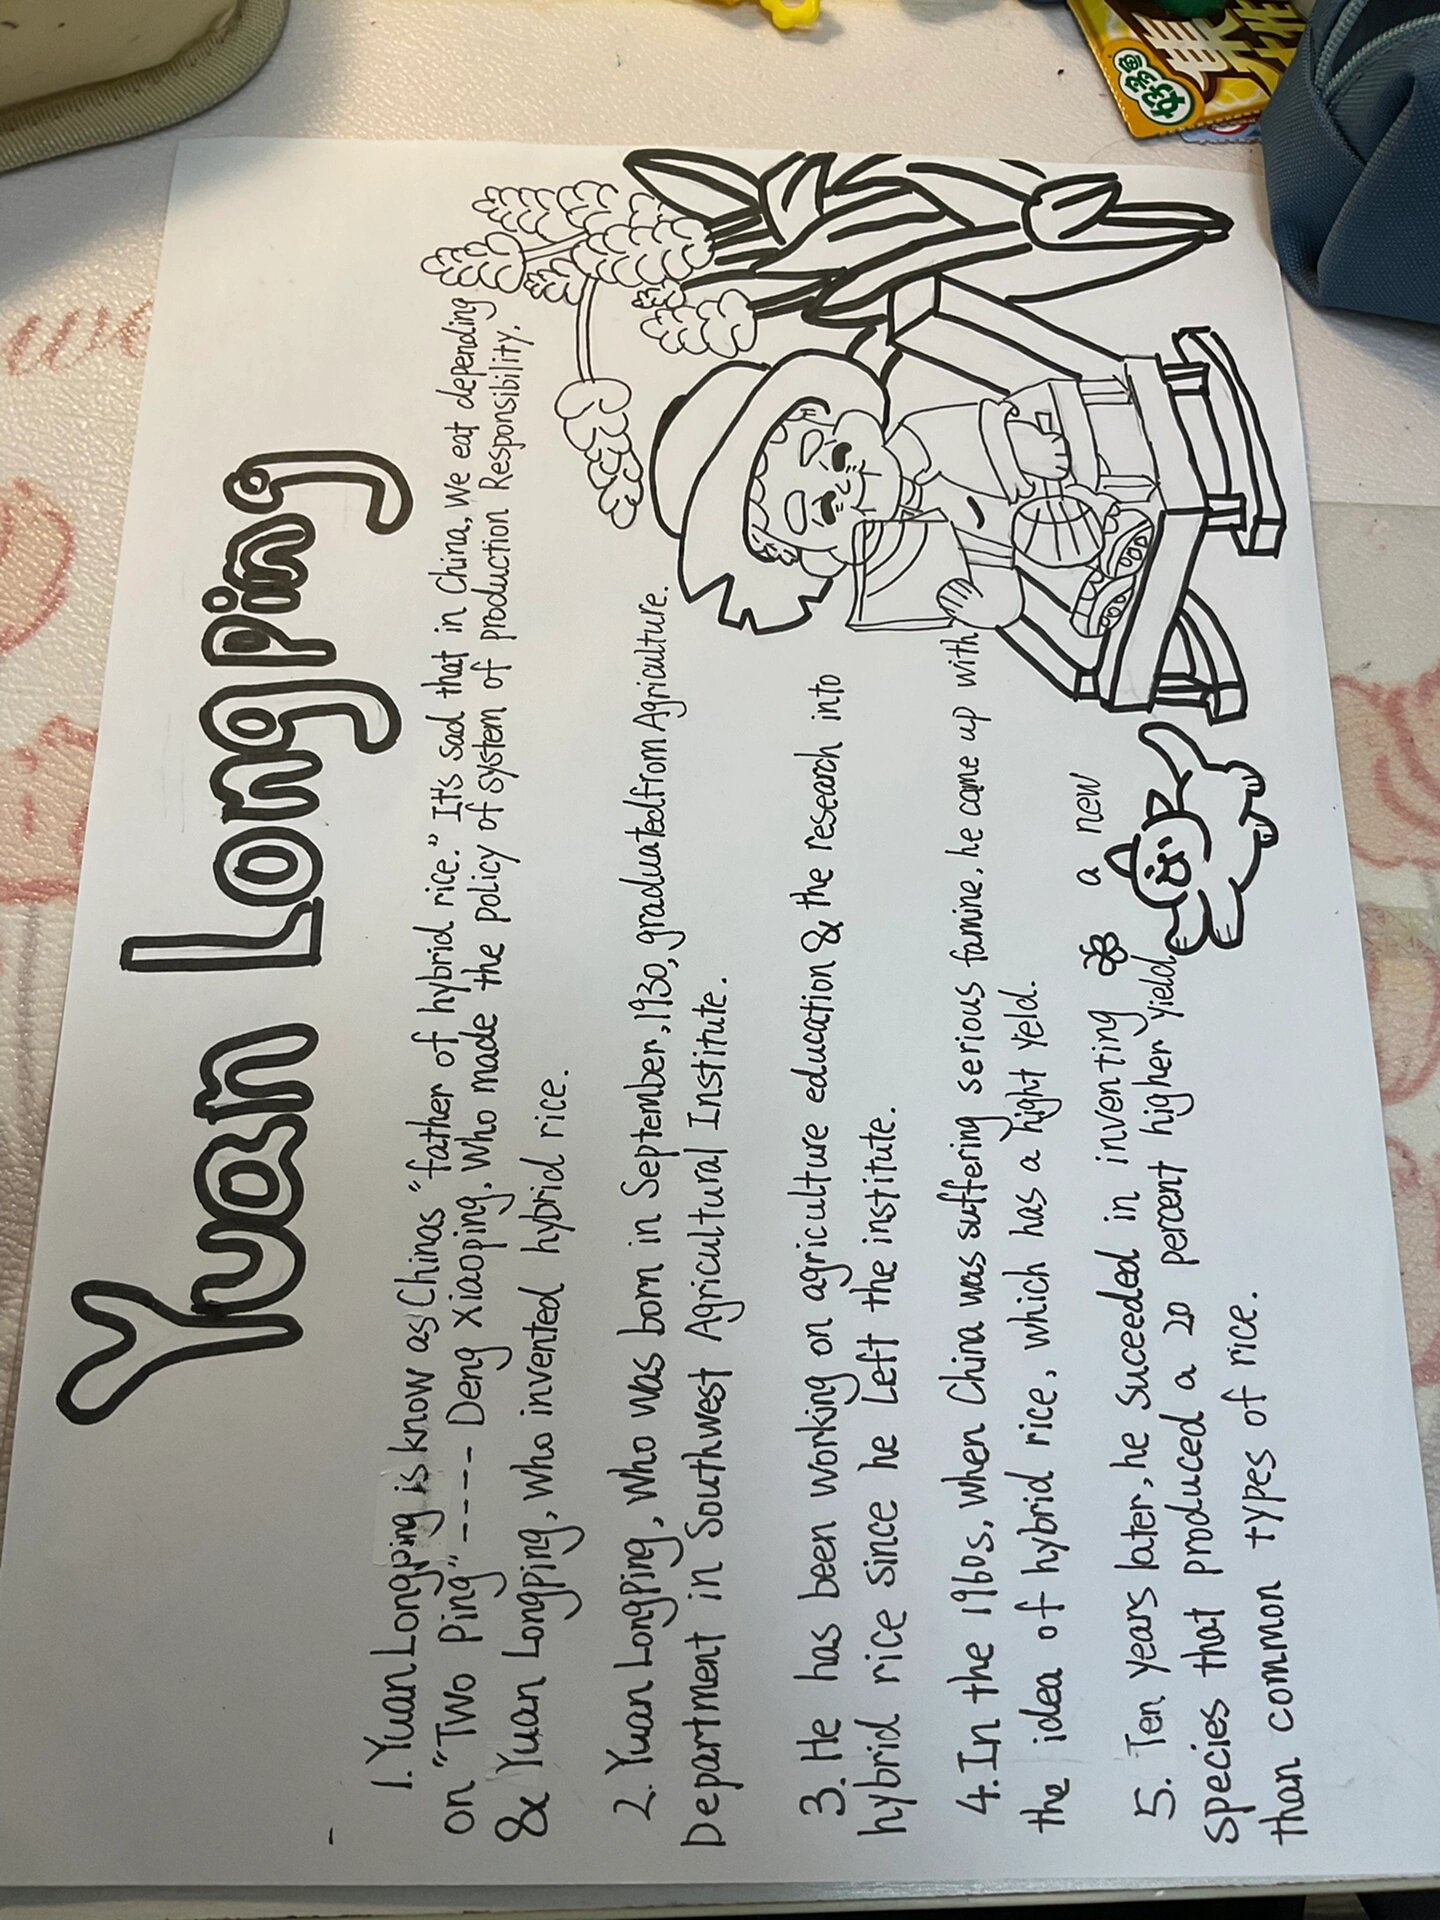 Yuan Longping
1. Yuan Longping is know as Chinas "father of hybrid rice." It's sad that in China, We eat depending
on "Two Ping" ----- Deng Xiaoping, Who made the policy of system of production Responsibility.
& Yuan Longping, who invented hybrid rice.
2. Yuan LongPing, Who was born in September, 1930, graduated from Agriculture.
Department in Southwest Agricultural Institute.
3. He has been working on agriculture education & the research into
hybrid rice since he Left the institute.
4. In the 1960s, when China was suffering serious famine, he came up with
the idea of hybrid rice, which has a hight yeld.
5. Ten years later, he suceeded in inventing a new
species that produced a 20 percent higher yield
than common types of rice.
好多鱼